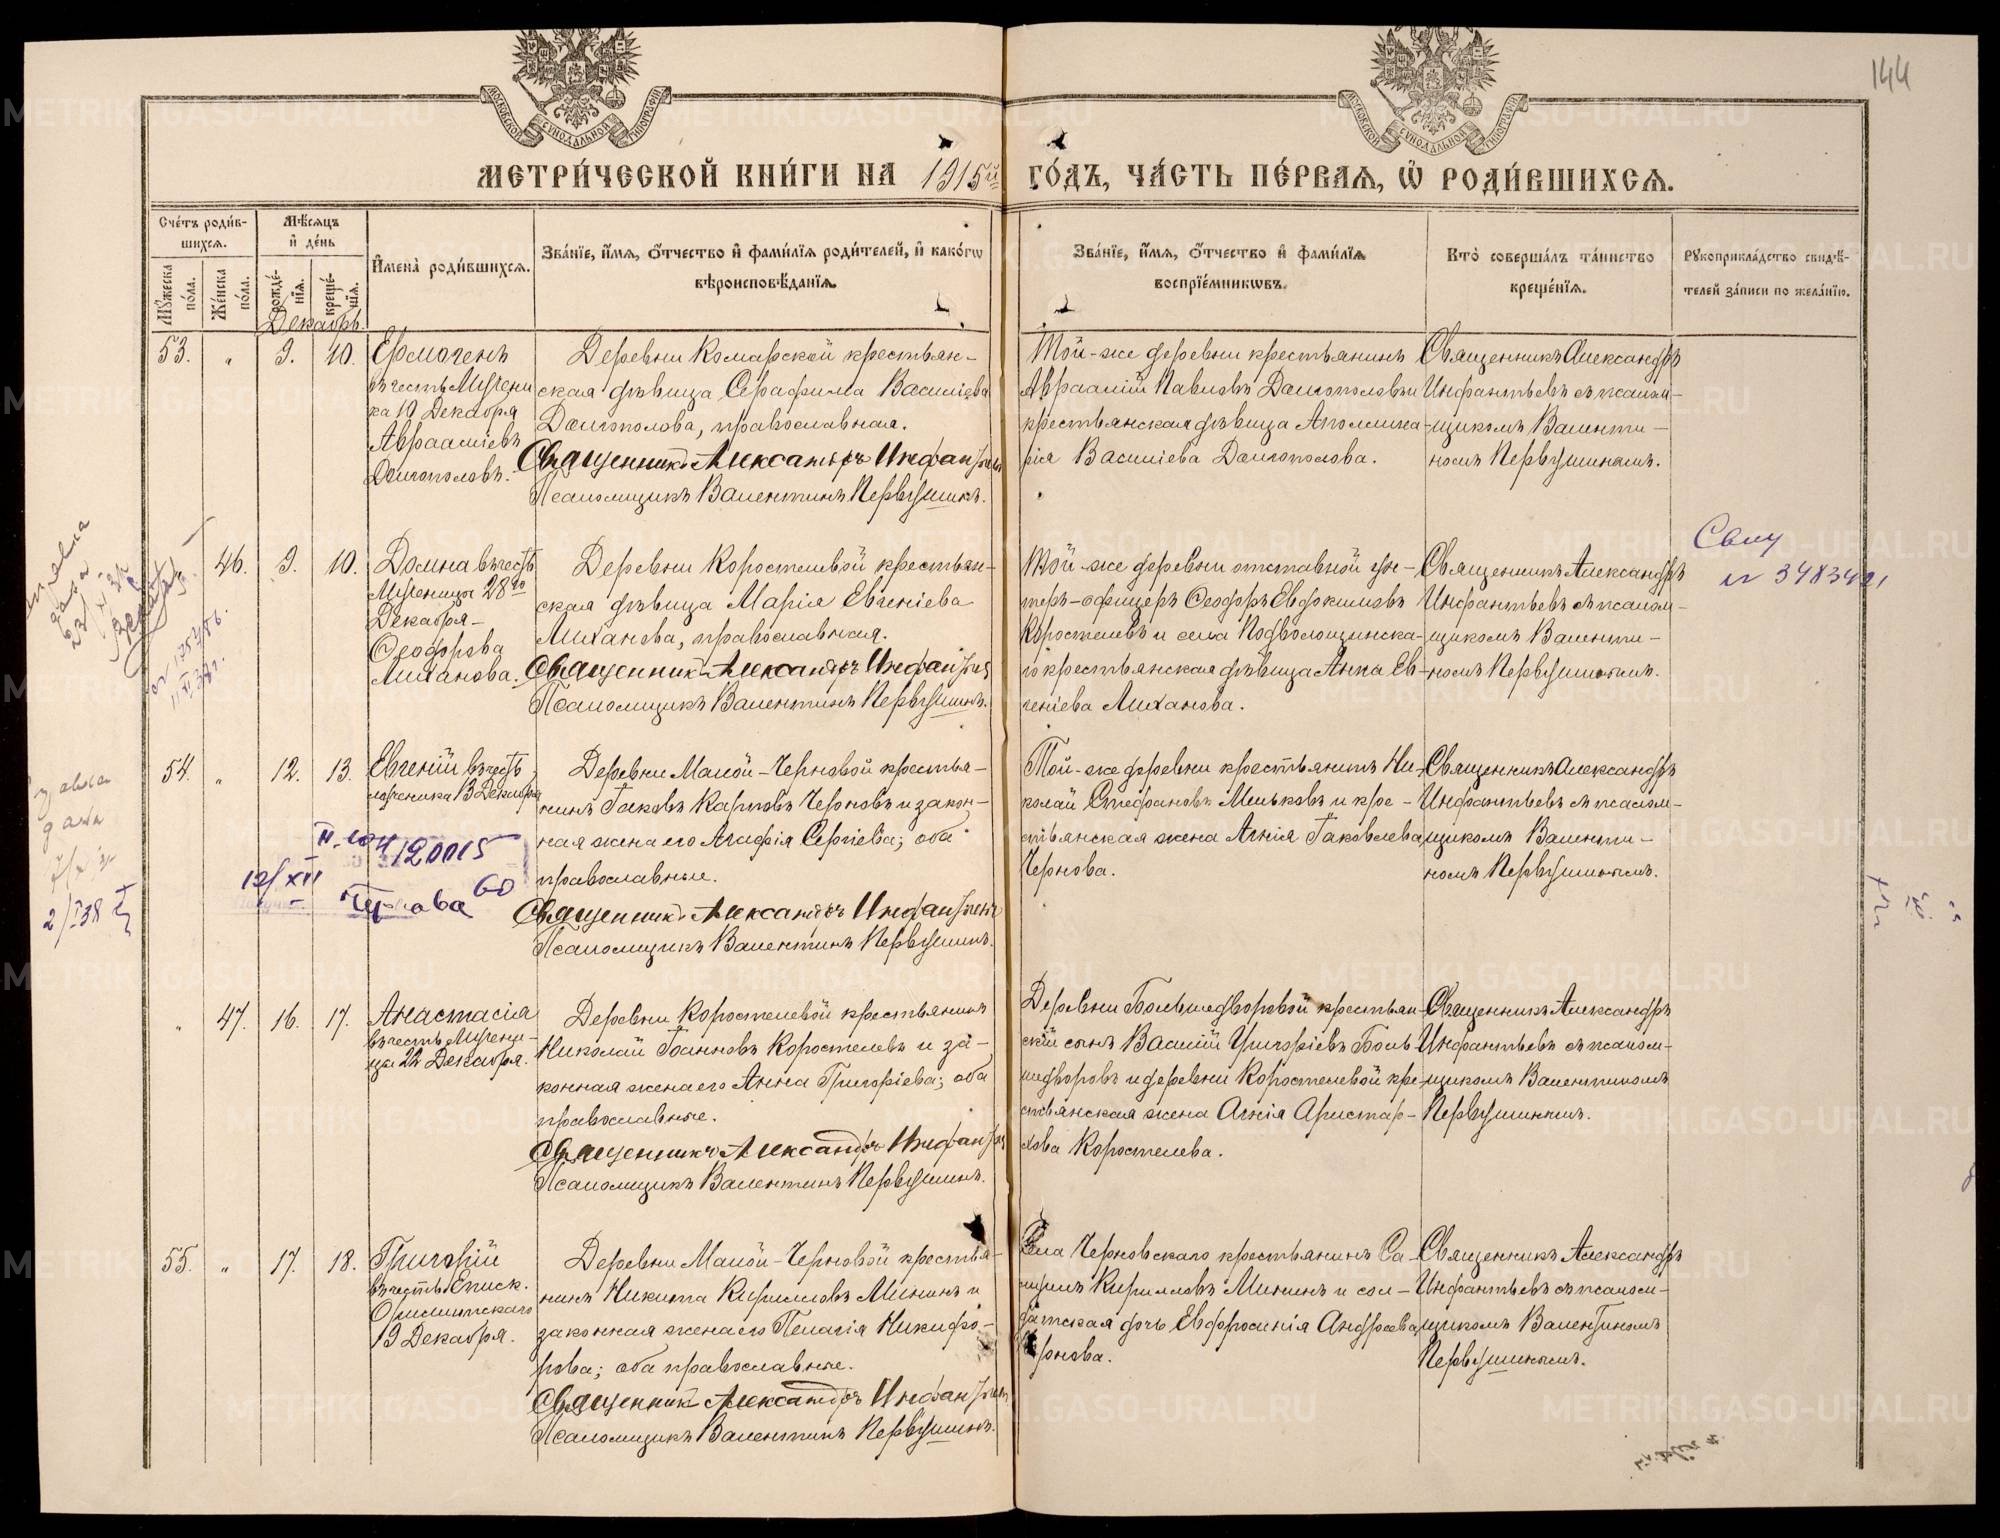 144
МОСКОВСКОЙ СѴНОДАЛЬНОЙ ТИПОГРАФІИ
МОСКОВСКОЙ СѴНОДАЛЬНОЙ ТИПОГРАФІИ
МЕТРИ́ЧЕСКОЙ КНИ́ГИ НА 1915й ГО́ДЪ, ЧА́СТЬ ПЕ́РВАЯ, Ѡ҆ РОДИ́ВШИХСЯ.
Сче́тъ роди́в-
шихся.
Мꙋ́жеска по́ла.
Же́нска по́ла.
Мѣ́сяцъ и҆ де́нь
рожде́-нїѧ.
креще́-нїѧ.
И҆мена̀ роди́вшихся.
Зва́нїе, и҆́мѧ, ѻ҆́тчество и҆ фами́лїѧ роди́телей, и҆ како́гѡ
вѣроисповѣ́данїѧ.
Зва́нїе, и҆́мѧ, ѻ҆́тчество и҆ фами́лїѧ
воспрїе́мникѡвъ.
Кто̀ соверша́лъ та́инство
креще́нїѧ.
Рꙋкоприкла́дство свидѣ́-
телей за́писи по жела́нїю.
Декабрь.
53. " 9. 10.
Ермогенъ
въ честь Мучени
ка 10 Декабря
Авраамiевъ
Долгополовъ.
Деревни Комарской крестьян-
ская дѣвица Серафима Василiева
Долгополова, православная.
Священникъ Александръ Инфантьев
Псаломщикъ Валентинъ Первушинъ.
Той-же деревни крестьянинъ
Авраамiй Павловъ Долгополовъ и
крестьянская дѣвица Аполлина-
рiя Василiева Долгополова.
Священникъ Александръ
Инфантьевъ съ псалом-
щикомъ Валенти-
номъ Первушинымъ.
46. 9. 10.
Домна въ честь
Мученицы 28го
Декабря-
Ѳеодорова
Лиханова.
Деревни Коростелевой крестьян-
ская дѣвица Марiя Евгенiева
Лиханова, православная.
Священникъ Александръ Инфантьев
Псаломщикъ Валентинъ Первушинъ.
Той-же деревни отставной ун-
теръ-офицеръ Ѳеодоръ Евдокимовъ
Коростелевъ и села Подволошинска-
го крестьянская дѣвица Анна Ев-
генiева Лиханова.
Священникъ Александръ
Инфантьевъ съ псалом-
щикомъ Валенти-
номъ Первушинымъ.
54. " 12. 13.
Евгенiй въ честь
мученика 13 Декабря
Деревни Малой-Черновой крестья-
нинъ Iаковъ Карповъ Черновъ и закон-
ная жена его Агафiя Сергiева; оба
православные.
Священникъ Александръ Инфантьевъ
Псаломщикъ Валентинъ Первушинъ.
Той-же деревни крестьянинъ Ни-
колай Стефановъ Меньковъ и кре-
стьянская жена Агнiя Iаковлева
Чернова.
Священникъ Александръ
Инфантьевъ съ псалом-
щикомъ Валенти-
номъ Первушинымъ.
120015
12/XII
60
2/I 38
" 47. 16. 17.
Анастасiя
въ честь Мучени-
цы 22 Декабря.
Деревни Коростелевой крестьянинъ
Николай Iоанновъ Коростелевъ и за-
конная жена его Анна Григорiева; оба
православные.
Священникъ Александръ Инфантьев
Псаломщикъ Валентинъ Первушинъ.
Деревни Большедворовой крестьян-
скiй сынъ Василiй Григорiевъ Боль-
шедворовъ и деревни Коростелевой кре-
стьянская жена Агнiя Аристар-
хова Коростелева.
Священникъ Александръ
Инфантьевъ съ псалом-
щикомъ Валентиномъ
Первушинымъ.
55. " 17. 18.
Григорiй
въ честь Еписк.
Омиритскаго
19 Декабря.
Деревни Малой-Черновой крестья-
нинъ Никита Кирилловъ Мининъ и
законная жена его Пелагiя Никифо-
рова; оба православные.
Священникъ Александръ Инфантьев
Псаломщикъ Валентинъ Первушинъ.
Села Черновскаго крестьянинъ Са-
Кирилловъ Мининъ и сол-
датская дочь Евфросинiя Андреева
Чернова.
Священникъ Александръ
Инфантьевъ съ псалом-
щикомъ Валентиномъ
Первушинымъ.
METRIKI.GASO-URAL.RU